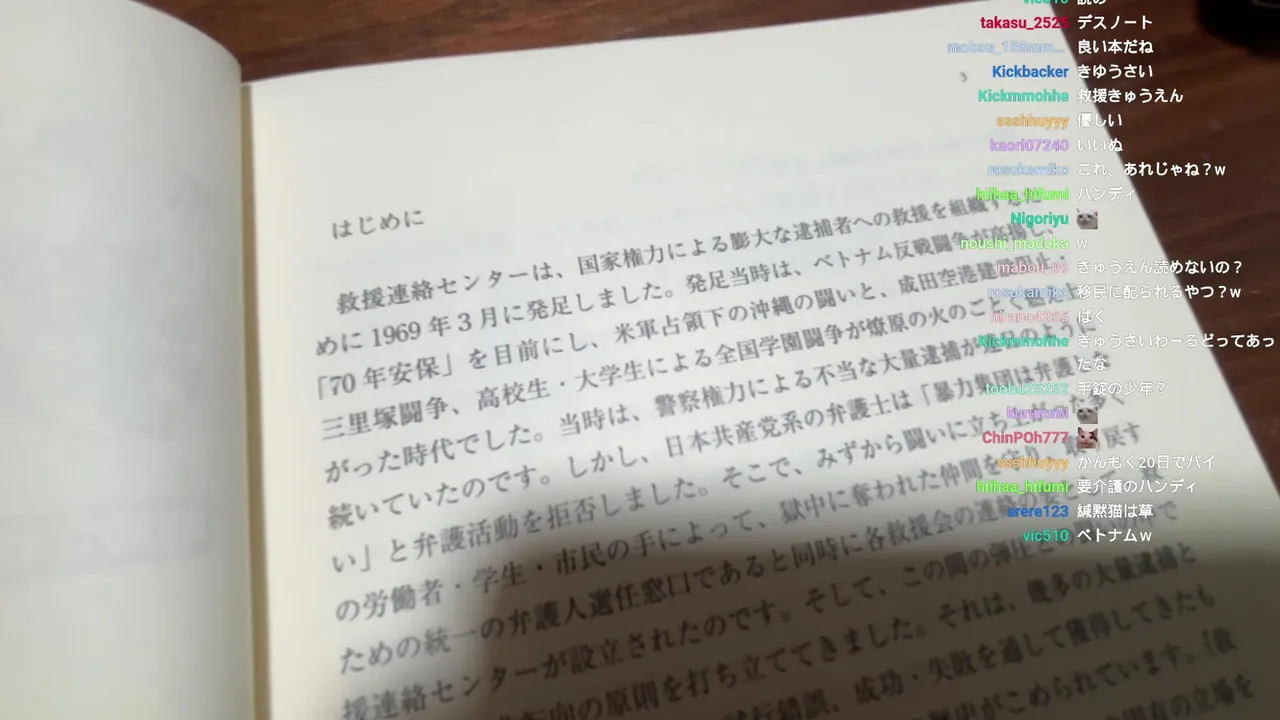 3
はじめに
救援連絡センターは、国家権力による膨大な逮捕者への救援を組織
めに1969年3月に発足しました。発足当時は、ベトナム反戦闘争が高揚し、
「70年安保」を目前にし、米軍占領下の沖縄の闘いと、成田空港建設
三里塚闘争、高校生・大学生による全国学園闘争が燎原の火のごとく
がった時代でした。当時は、警察権力による不当な大量逮捕が連日のように
続いていたのです。しかし、日本共産党系の弁護士は「暴力集団は弁護
い」と弁護活動を拒否しました。そこで、みずから闘いに立ち上がった
の労働者・学生・市民の手によって、獄中に奪われた仲間を 戻す
ための統一の弁護人選任窓口であると同時に各救援会の連絡
援連絡センターが設立されたのです。そして、この間の弾圧との
の原則を打ち立ててきました。それは、幾多の大量逮捕と
試行錯誤、成功・失敗を通して獲得してきたも
がこめられています。
固有の立場を
vic510
takasu_2525 デスノート
良い本だね
Kickbacker きゆうさい
Kickmmohhe 救援きゅうえん
ssshhuyyy 優しい
kaori07240 いいぬ
rosukamiko これ、あれじゃね？w
hiihaa_hifumi ハンディ
Nigoriyu
noushi_madoka w
mabou_09 きゅうえん読めないの？
rosukamiko 移民に配られるやつ？w
ぱく
Kickmmohhe きゅうさいわーるどってあっ
たな
手錠の少年？
ChinPOh777
ssshhuyyy かんもく20日でパイ
hiihaa_hifumi 要介護のハンディ
arere123 緘黙猫は草
vic510 ベトナムｗ